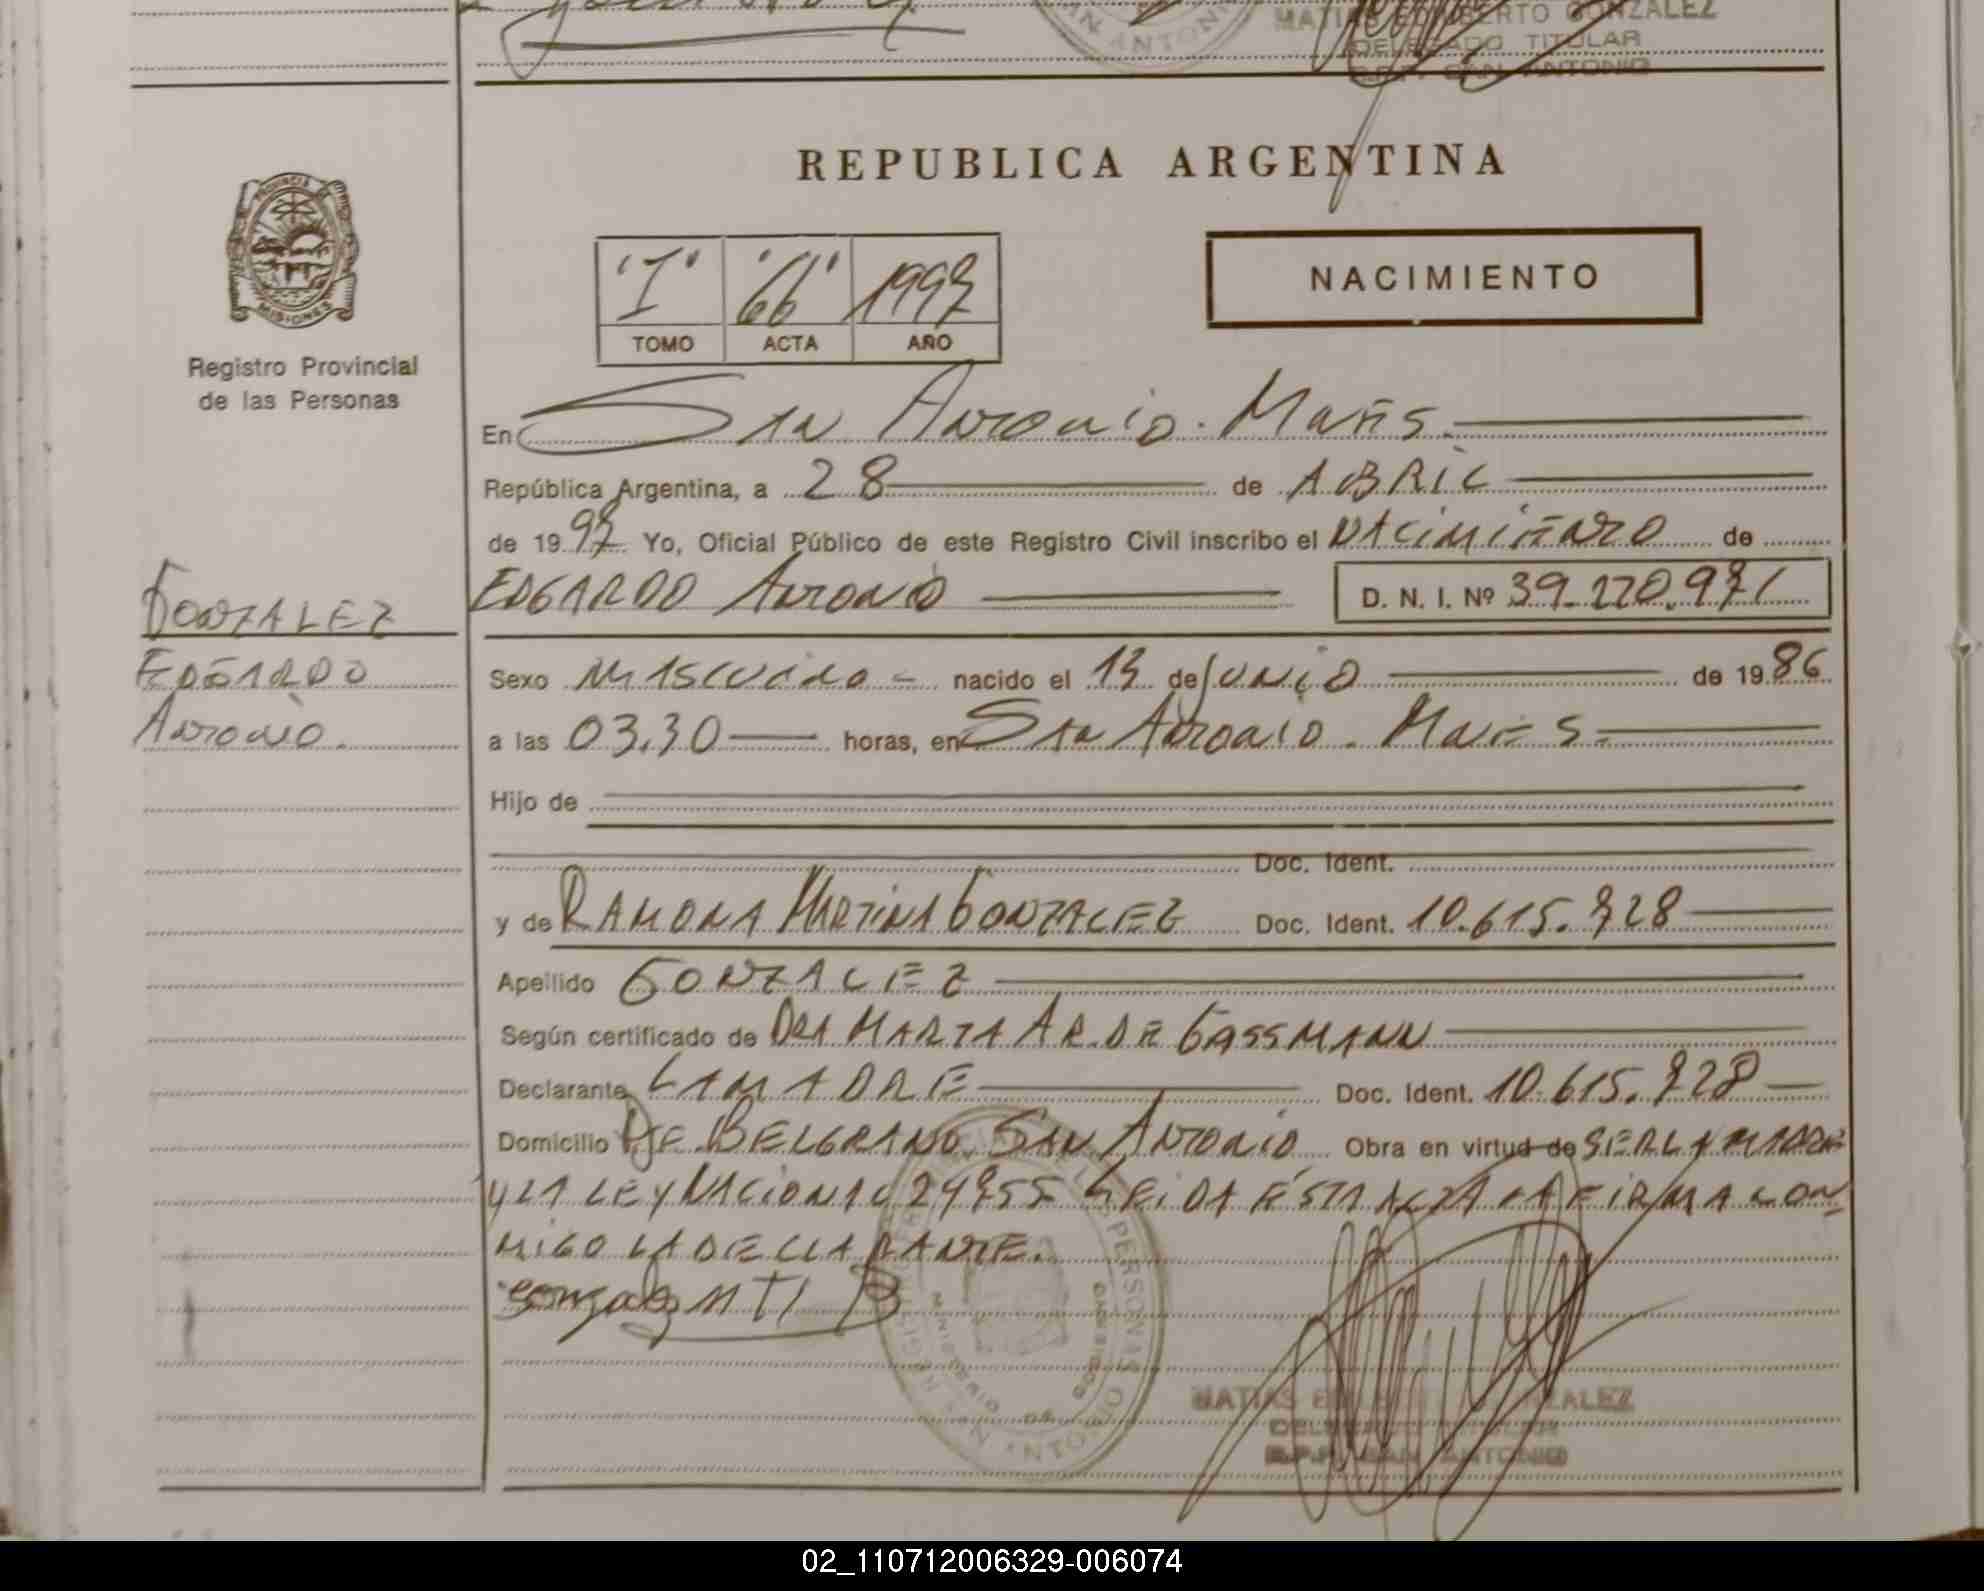 MATIAS EDILBERTO GONZALEZ
DELEGADO TITULAR
SAN ANTONIO
REPUBLICA ARGENTINA
PROVINCIA DE
MISIONES
"I" "66" 1997
TOMO ACTA AÑO
NACIMIENTO
Registro Provincial
de las Personas
En San Antonio. Mnes.
República Argentina, a 28 de ABRIL
de 1997 Yo, Oficial Público de este Registro Civil inscribo el NACIMIENTO de
EDGARDO ANTONIO D. N. I. Nº 39.270.971
GONZALEZ
EDGARDO
ANTONIO.
Sexo MASCULINO - nacido el 13 de JUNIO de 1986
a las 03.30 horas, en San Antonio. Mnes.
Hijo de
Doc. Ident.
y de RAMONA MARTINA GONZALEZ Doc. Ident. 10.615.728
Apellido GONZALEZ
Según certificado de DRA MARTA AR. DE GASSMANN
Declarante LA MADRE Doc. Ident. 10.615.728
Domicilio BELGRANO. SAN ANTONIO Obra en virtud de SER LA MADRE
Y LA LEY NACIONAL 24755 LEIDA ESTA ACTA LA FIRMA CON
MIGO LA DECLARANTE.
MATIAS EDILBERTO GONZALEZ
DELEGADO TITULAR
R.P.P. SAN ANTONIO
02_110712006329-006074